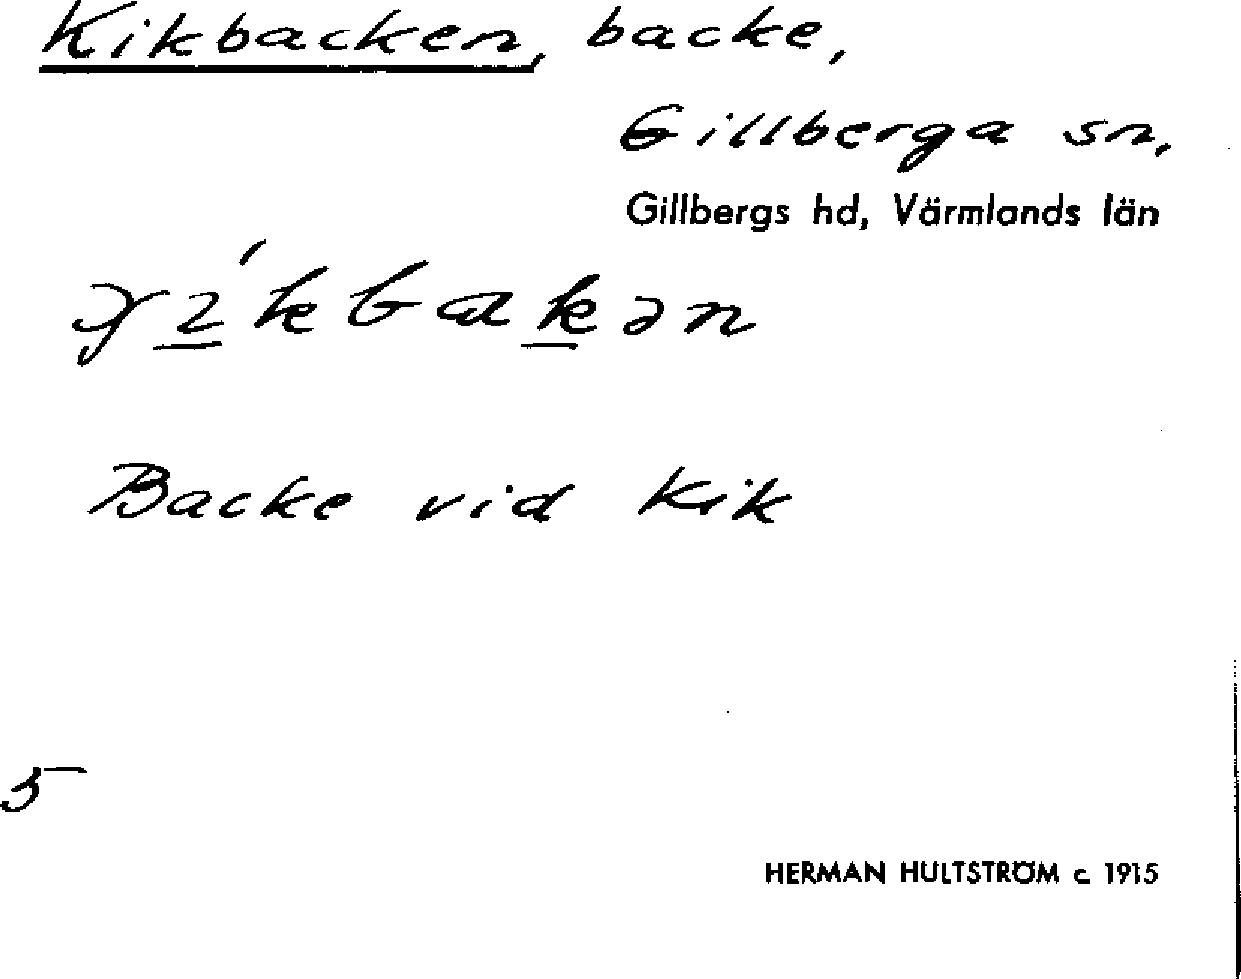 Kikbacken, backe,
Gillberga sn,
Gillbergs hd, Värmlands län
Backe vid Kik
5
HERMAN HULTSTRÖM c 1915